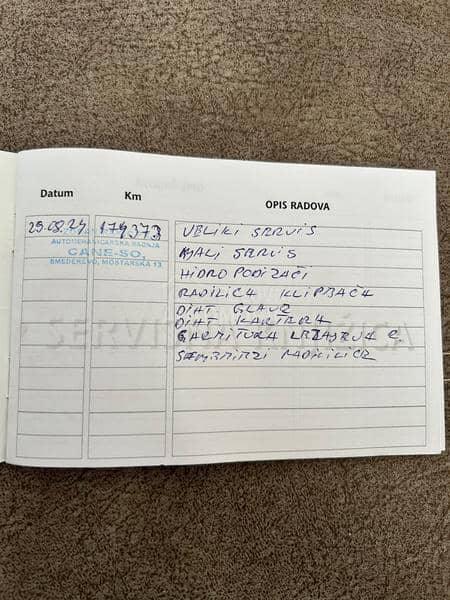 Datum Km OPIS RADOVA
29.08.24 174373 VELIKI SERVIS
AUTOMEHANIČARSKA RADNJA
CANE-SO,
SMEDEREVO, MOSTARSKA 13
MALI SERVIS
HIDROPODIZAČI
RADILICA KLIPJAČA
DIHT GLAVE
DIHT KARTERA
GARNITURA LEŽAJEVA
SEMERINZI RADILICE
SERVISNA KNJIŽICA